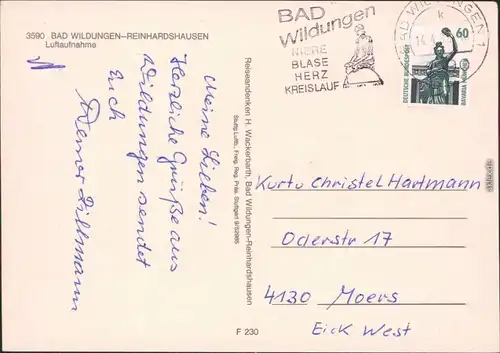 3590 BAD WILDUNGEN-REINHARDSHAUSEN
Luftaufnahme
Meine Lieben!
Herzliche Grüße aus
Wildungen sendet
Euch
Werner Dillmann
Reiseandenken H. Wackerbarth, Bad Wildungen-Reinhardshausen
Freig. Reg. Präs. Stuttgart
F 230
BAD
Wildungen
NIERE
BLASE
HERZ
KREISLAUF
BAD WILDUNGEN 1
k
60
DEUTSCHE BUNDESPOST
BAVARIA MÜNCHEN
Kurt u Christel Hartmann
Oderstr 17
4130 Moers
Eick West